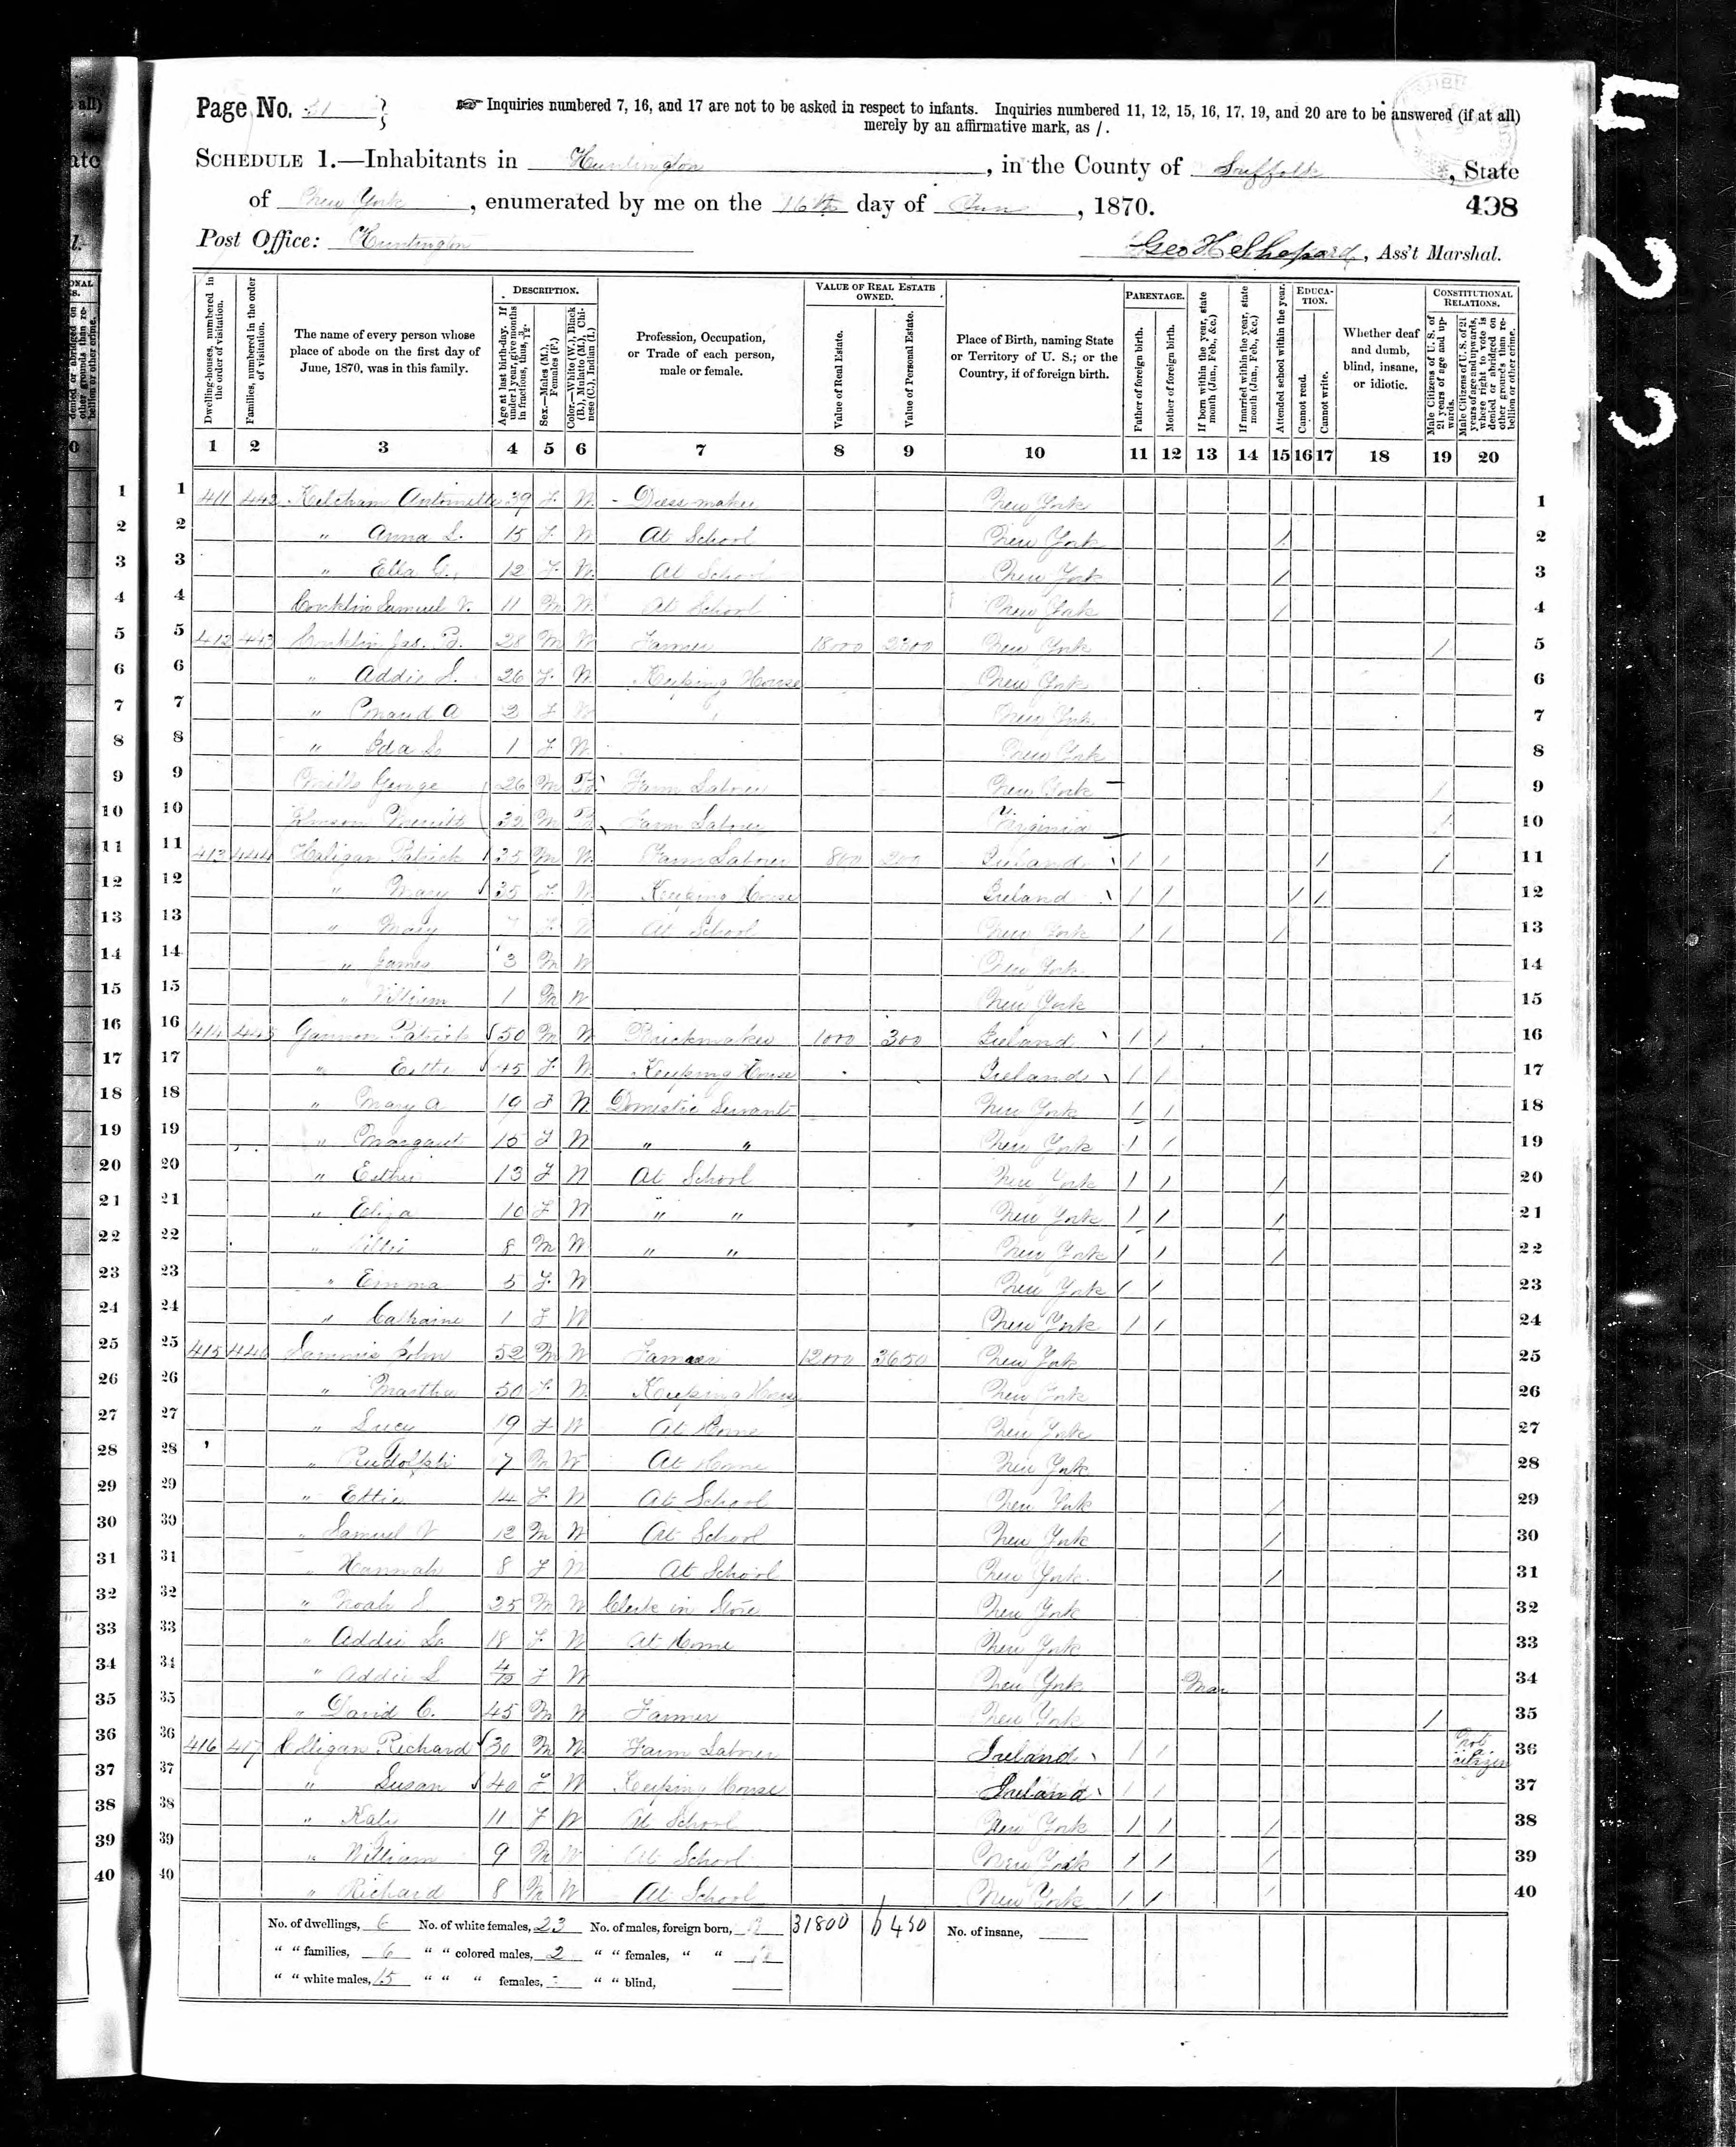 Page No. 51
☞ Inquiries numbered 7, 16, and 17 are not to be asked in respect to infants. Inquiries numbered 11, 12, 15, 16, 17, 19, and 20 are to be answered (if at all)
merely by an affirmative mark, as /.
SCHEDULE 1.—Inhabitants in Huntington, in the County of Suffolk, State
of New York, enumerated by me on the 16th day of Jun, 1870.
498
Post Office: Huntington
Geo H Shepard, Ass't Marshal.
Dwelling-houses, numbered in the order of visitation.
Families, numbered in the order of visitation.
The name of every person whose place of abode on the first day of June, 1870, was in this family.
DESCRIPTION.
Age at last birth-day. If under 1 year, give months in fractions, thus, 3/12.
Sex.—Males (M.), Females (F.)
Color.—White (W.), Black (B.), Mulatto (M.), Chinese (C.), Indian (I.)
Profession, Occupation, or Trade of each person, male or female.
VALUE OF REAL ESTATE OWNED.
Value of Real Estate.
Value of Personal Estate.
Place of Birth, naming State or Territory of U. S.; or the Country, if of foreign birth.
PARENTAGE.
Father of foreign birth.
Mother of foreign birth.
If born within the year, state month (Jan., Feb., &c.)
If married within the year, state month (Jan., Feb., &c.)
Attended school within the year.
EDUCATION.
Cannot read.
Cannot write.
Whether deaf and dumb, blind, insane, or idiotic.
CONSTITUTIONAL RELATIONS.
Male Citizens of U. S. of 21 years of age and upwards.
Male Citizens of U. S. of 21 years of age and upwards, where right to vote is denied or abridged on other grounds than rebellion or other crime.
1 2 3 4 5 6 7 8 9 10 11 12 13 14 15 16 17 18 19 20
1 411 442 Ketcham Antoinette 39 F. W. Dress-maker New York 1
2 " Anna L. 15 F. W At School New York / 2
3 " Ella G. 12 F. W. At School New York / 3
4 Conklin Samuel V. 11 M W. At School New York / 4
5 412 443 Conklin Jas. B. 28 M W Farmer 18000 2300 New York / 5
6 " Addie S. 26 F. W. Keeping House New York 6
7 " Maud A 2 F W New York 7
8 " Ida L. 1 F W. New York 8
9 Mills George 26 M B Farm Laborer New York / 9
10 Johnson Merritt 32 M B Farm Laborer Virginia / 10
11 413 444 Haligan Patrick 35 M W. Farm Laborer 800 200 Ireland / / / / 11
12 " Mary 35 F. W Keeping House Ireland / / / / 12
13 " Mary 7 F. W At School New York / / / 13
14 " James 3 M W New York 14
15 " William 1 M W New York 15
16 414 445 Gannon Patrick 50 M W Brickmaker 1000 300 Ireland / / 16
17 " Esther 45 F. W Keeping House Ireland / / 17
18 " Mary A 19 F W. Domestic Servant New York / / 18
19 " Margaret 15 F W " " New York / / 19
20 " Esther 13 F W At School New York / / / 20
21 " Eliza 10 F W " " New York / / / 21
22 " Willie 8 M W " " New York / / / 22
23 " Emma 5 F. W New York / / 23
24 " Catharine 1 F W New York / / 24
25 415 446 Sammis John 52 M W Farmer 12000 3650 New York 25
26 " Martha 50 F. W. Keeping House New York 26
27 " Lucy 19 F W At Home New York 27
28 " Rudolph 7 M W At Home New York 28
29 " Ettie 14 F. W At School New York / 29
30 " Samuel V 12 M W At School New York / 30
31 " Hannah 8 F W At School New York / 31
32 " Noah S 25 M W Clerk in Store New York 32
33 " Addie L. 18 F. W At Home New York 33
34 " Addie L 4/12 F W New York Mar 34
35 " David C. 45 M W Farmer New York / 35
36 416 447 Colligan Richard 30 M W. Farm Laborer Ireland / / Not citizen 36
37 " Susan 40 F W Keeping House Ireland / / 37
38 " Kate 11 F W At School New York / / / 38
39 " William 9 M W At School New York / / / 39
40 " Richard 8 M W At School New York / / / 40
No. of dwellings, 6 No. of white females, 23 No. of males, foreign born, 31800 6450 No. of insane,
" " families, 6 " " colored males, 2 " " females, " "
" " white males, 15 " " " females, - " " blind,